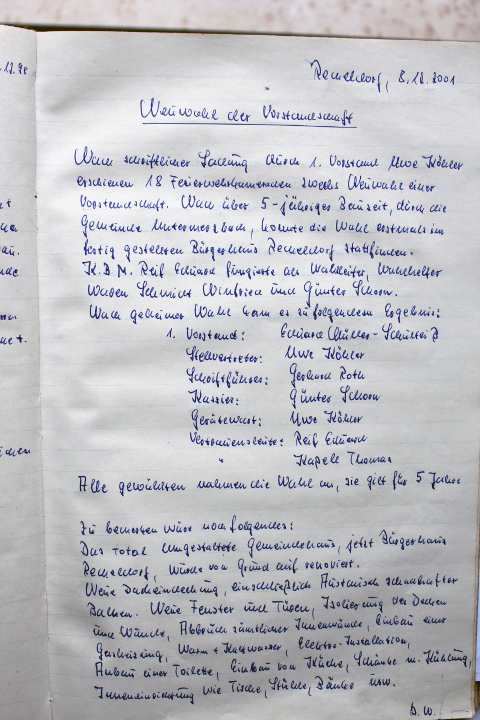 .12.98
Recheldorf, 8.12.2001
Neuwahl der Vorstandschaft
Nach schriftlicher Ladung durch 1. Vorstand Uwe Köhler
erschienen 18 Feuerwehrkameraden zwecks Neuwahl einer
Vorstandschaft. Nach über 5-jähriger Bauzeit, durch die
Gemeinde Untermerzbach, konnte die Wahl erstmals im
fertig gestellten Bürgerhaus Recheldorf stattfinden.
K.B.M. Reif Eduard fungierte als Wahlleiter, Wahlhelfer
waren Schmidt Winfried und Günter Schorn.
Nach geheimer Wahl kam es zu folgendem Ergebnis:
1. Vorstand: Eduard Müller-
Stellvertreter: Uwe Köhler
Schriftführer: Gerhard Roth
Kassier: Günter Schorn
Gerätewart: Uwe Köhler
Vertrauensleute: Reif Eduard
" Kapell Thomas
Alle gewählten nahmen die Wahl an, sie gilt für 5 Jahre
Zu bemerken wäre noch folgendes:
Das total umgestaltete Gemeindehaus, jetzt Bürgerhaus
Recheldorf, wurde von Grund auf renoviert.
Neue Dacheindeckung, einschließlich Austausch schadhafter
Balken. Neue Fenster und Türen, Isolierung der Decken
und Wände, Abbruch sämtlicher Innenwände, Einbau einer
Gasheizung, Warm + Kaltwasser, Elektro-Installation,
Anbau einer Toilette, Einbau von Küche, Schänke m. Kühlung,
Inneneinrichtung wie Tische, Stühle, Bänke usw.
b.w.